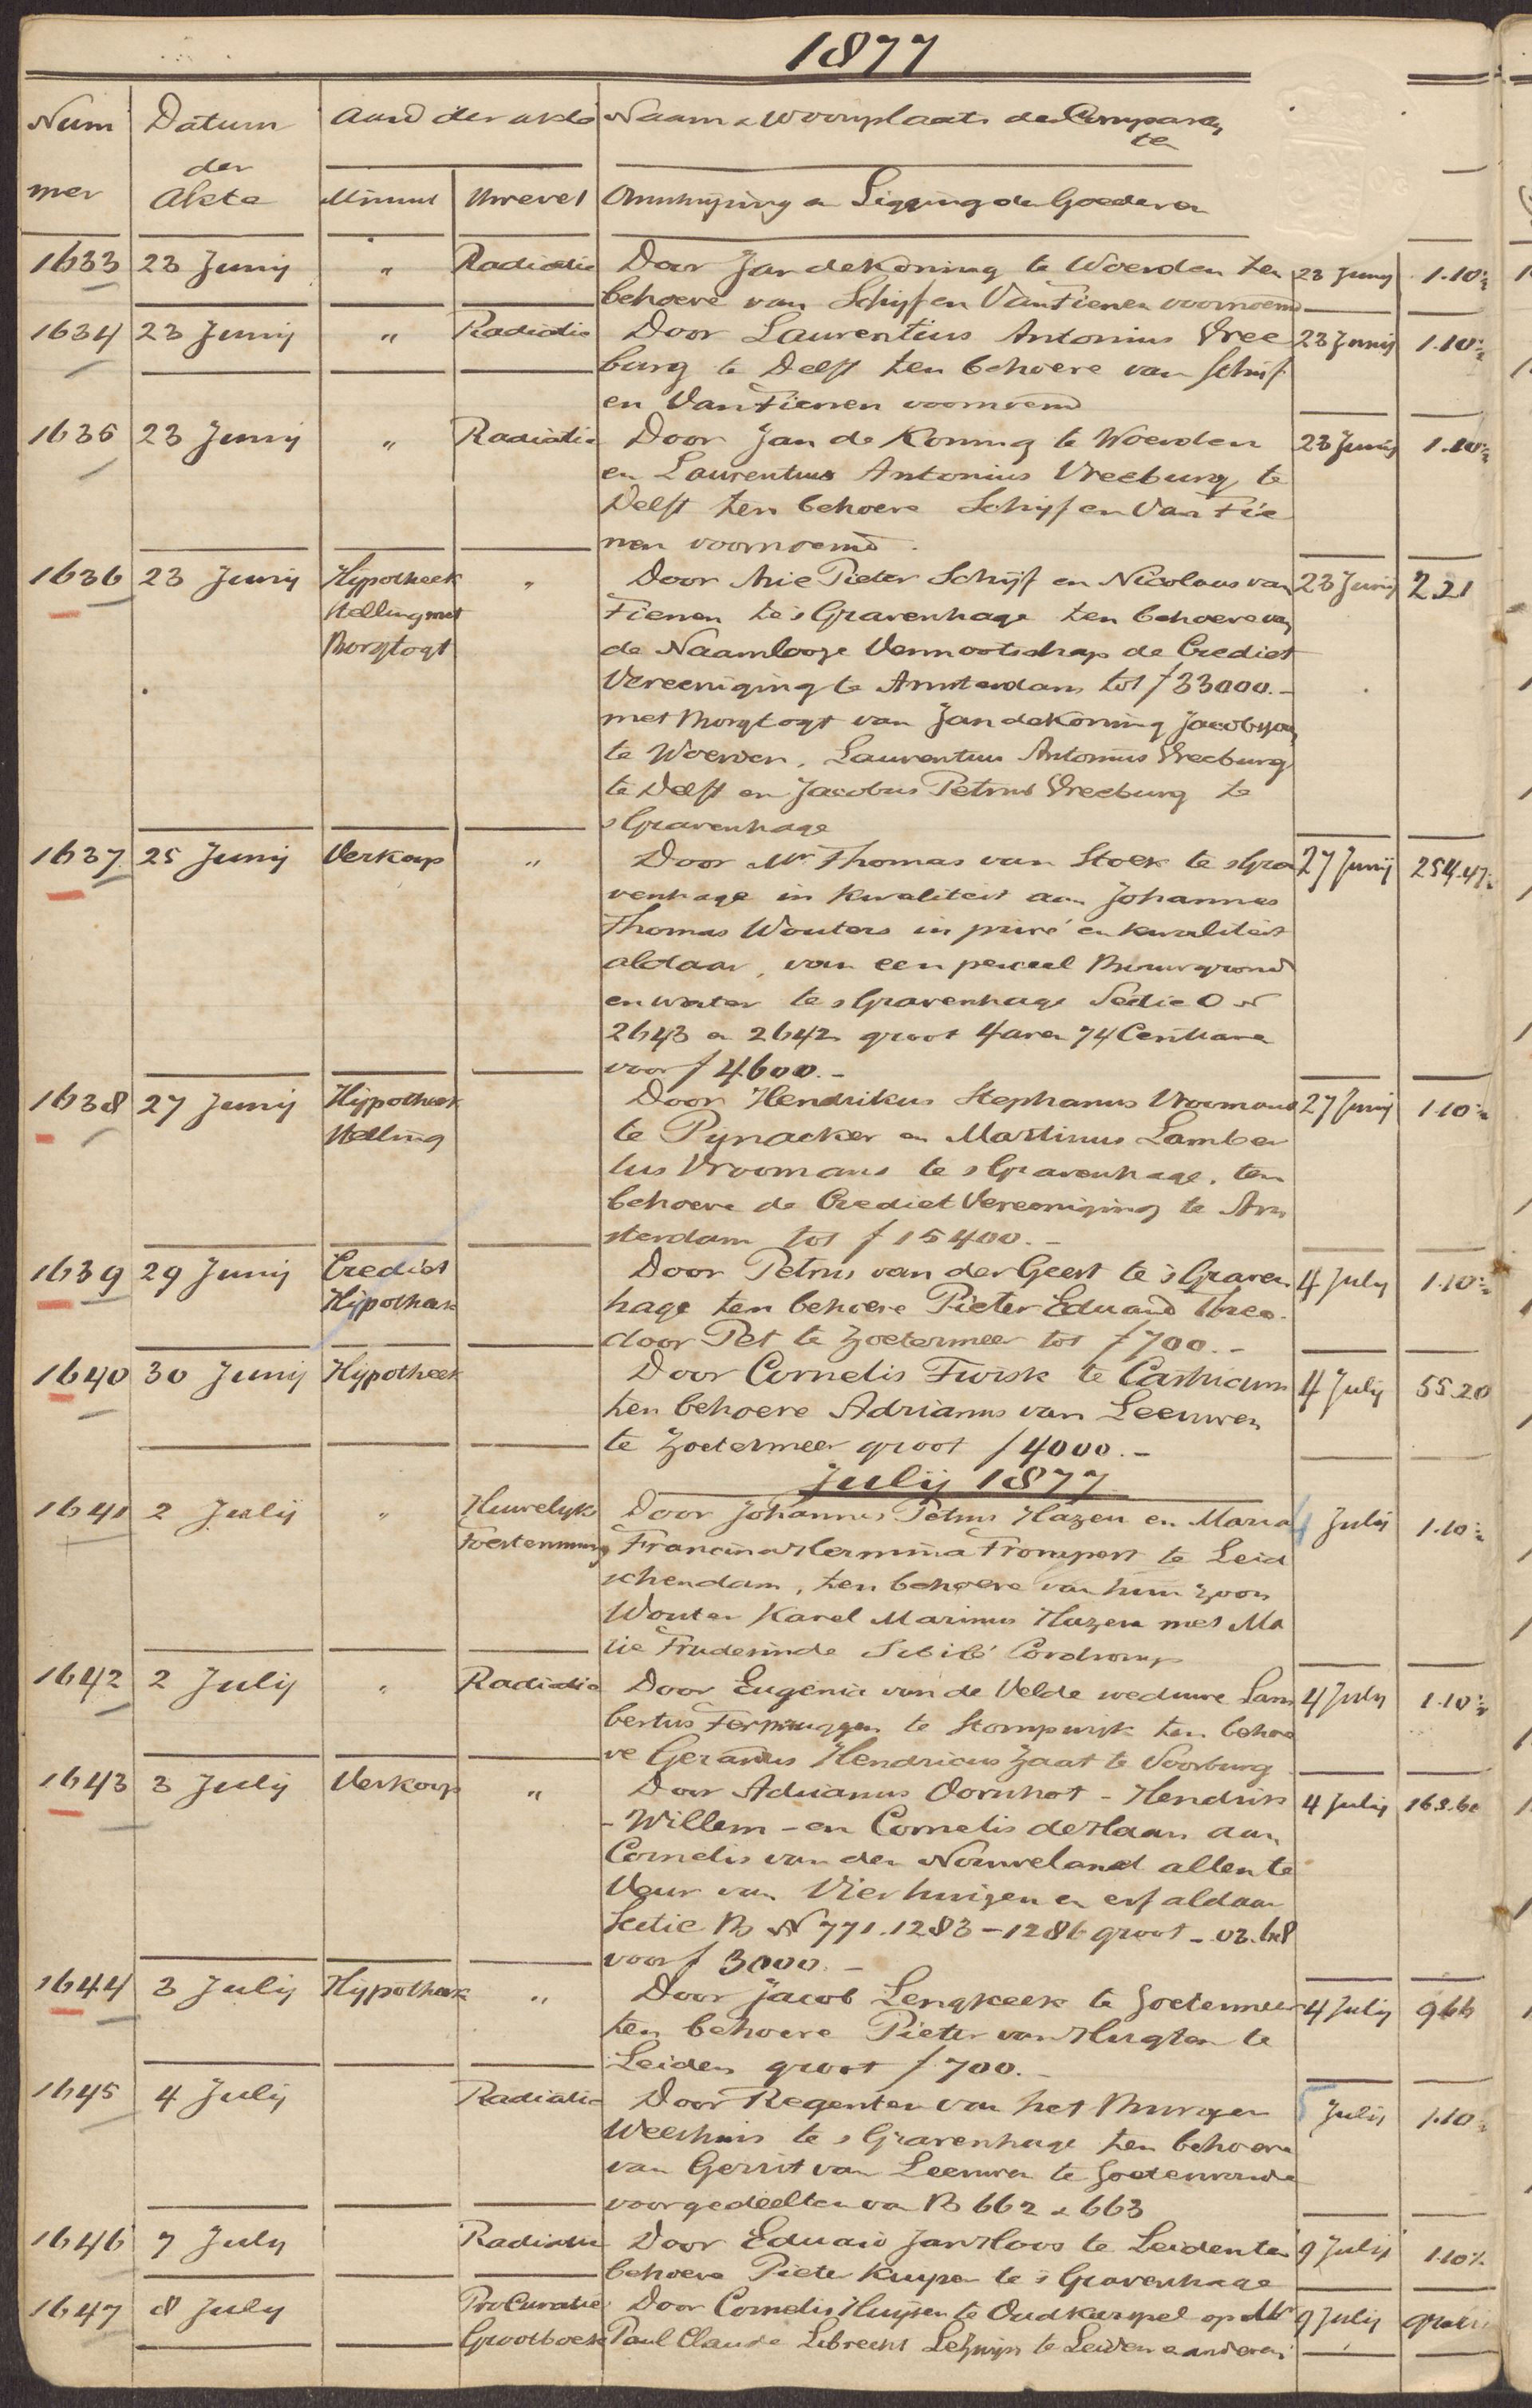 1877
Num mer
Datum der Akte
Aard der akte
Minuut
Brevet
Naam & Woonplaats der Comparan
ten
Omschrijving en Ligging der Goederen
1633 23 Junij " Radiatie Door Jan de Koning te Woerden ten 23 Junij 1.10½
behoeve van Schijf en Van Tienen voornoemd
1634 23 Junij " Radiatie Door Laurentius Antonius Vree 23 Junij 1.10½
burg te Delft ten behoeve van Schijf
en Van Tienen voornoemd
1635 23 Junij " Radiatie Door Jan de Koning te Woerden 23 Junij 1.10½
en Laurentius Antonius Vreeburg te
Delft ten behoeve Schijf en Van Tie
nen voornoemd.
1636 23 Junij Hypotheek " Door Arie Pieter Schijf en Nicolaas van 23 Junij 2.21
stelling met Tienen te 's Gravenhage ten behoeve van
Borgtogt de Naamlooze Vennootschap de Crediet
Vereeniging te Amsterdam tot f 33000.-
met Borgtogt van Jan de Koning Jacobszoon
te Woerden, Laurentius Antonius Vreeburg
te Delft en Jacobus Petrus Vreeburg te
s Gravenhage
1637 25 Junij Verkoop " Door Mr Thomas van Stolk te s Gra 27 Junij 254.47½
venhage in kwaliteit aan Johannes
Thomas Wouters in privé en kwaliteit
aldaar, van een perceel Bouwgrond
en water te s Gravenhage Sectie O N
2643 en 2642 groot 4 aren 74 Centiaren
voor f 4600.-
1638 27 Junij Hypotheek Door Hendrikus Stephanus Vroomans 27 Junij 1.10½
stelling te Pynacker en Martinus Lamber
tus Vroomans te s Gravenhage, ten
behoeve de Crediet Vereeniging te Am
sterdam tot f 15400.-
1639 29 Junij Crediet Door Petrus van der Geest te 's Graven 4 July 1.10½
Hypotheek hage ten behoeve Pieter Eduard Theo
door Pet te Zoetermeer tot f 700.-
1640 30 Junij Hypotheek Door Cornelis Twisk te Castricum 4 Julij 55.20
ten behoeve Adrianus van Leeuwen
te Zoetermeer groot f 4000.-
Julij 1877
1641 2 Julij " Huwelijks Door Johannes Petrus Hazen en Maria 4 Julij 1.10½
Toestemming Francina Hermina Trompert te Leid
schendam, ten behoeve van hun zoon
Wouter Karel Marinus Hazen met Ma
rie
1642 2 Julij " Radiatie Door Eugenia van de Velde weduwe Lam 4 July 1.10½
bertus te Stompwijk ten behoe
ve Gerardus Hendricus Zaat te Voorburg
1643 3 Julij Verkoop " Door Adrianus Oornhot - Hendrik 4 Julij 168.60
- Willem - en Cornelis de Haan aan
Cornelis van den Nouweland allen te
Veur van Vier huizen en erf aldaar
Sectie B N 771.1283-1286 groot -.03.68
voor f 3000.-
1644 3 July Hypotheek " Door Jacob Lengkeek te Zoetermeer 4 Julij 966
ten behoeve Pieter van Hugten te
Leiden groot f 700.-
1645 4 July Radiatie Door Regenten van het Burger 5 Julij 1.10½
Weeshuis te s Gravenhage ten behoeve
van Gerrit van Leeuwen te Zoeterwoude
voor gedeelten van B 662 & 663
1646 7 July Radiatie Door Eduard Jan Hoos te Leiden ten 9 Julij 1.10½
behoeve Pieter Kuyper te 's Gravenhage
1647 8 July Procuratie Door Cornelis Huijsen te Oudkarspel op Mr 9 Julij gratis
Grootboek Paul Claude Librecht Lezwijn te Leiden & anderen